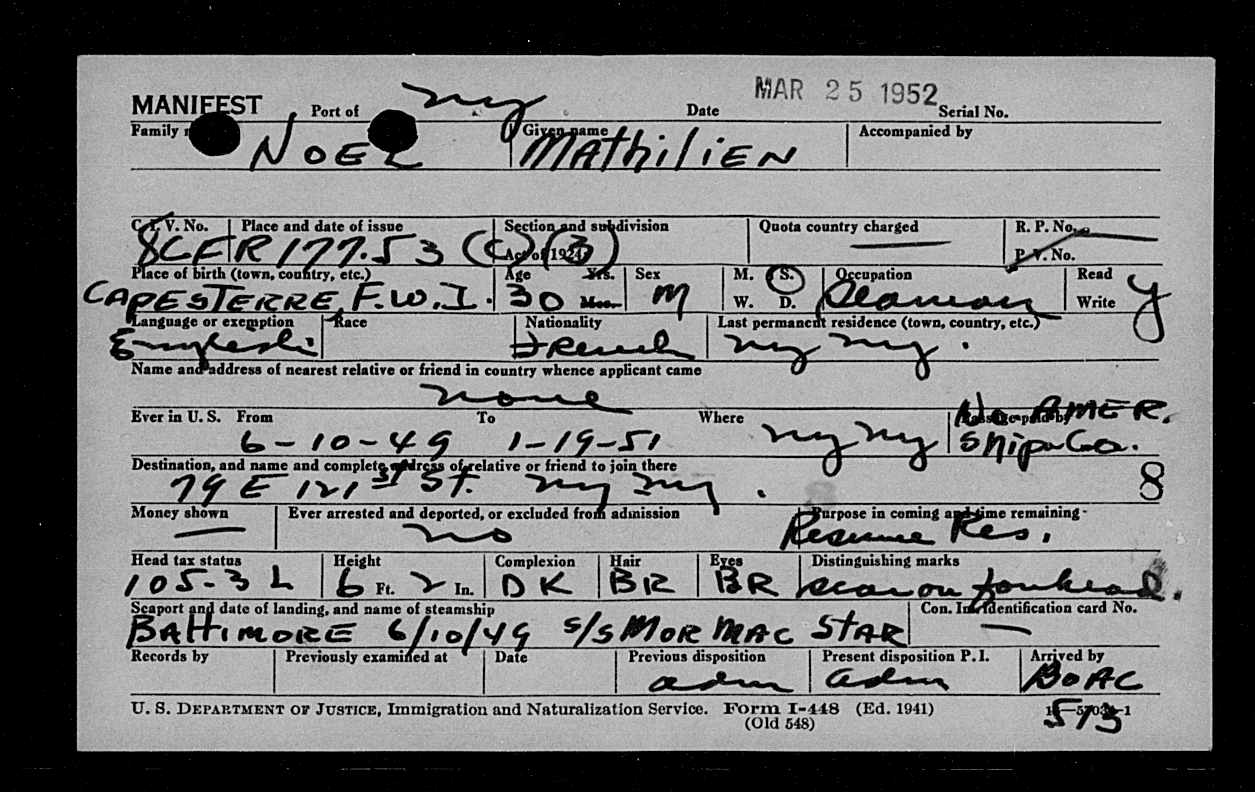 MAR 25 1952
MANIFEST Port of NY Date Serial No.
Family Given name Accompanied by
NOEL MAThiliEN
C. I. V. No. Place and date of issue Section and subdivision Quota country charged — R. P. No.
8CFR 177.53 (C) (3) Act of 1924 P. V. No.
Place of birth (town, country, etc.) Age Yrs. Sex M. S. Occupation Read
CAPESTERRE, F.W.I. 30 Mos. M W. D. Seaman Write Y
Language or exemption Race Nationality Last permanent residence (town, country, etc.)
English French NY NY.
Name and address of nearest relative or friend in country whence applicant came
none
Ever in U. S. From To Where Passage paid by No. AMER.
6-10-49 1-19-51 NY NY Ship Co.
Destination, and name and complete address of relative or friend to join there
79 E 121st St. NY NY. 8
Money shown Ever arrested and deported, or excluded from admission Purpose in coming and time remaining
— no Resume Res.
Head tax status Height Complexion Hair Eyes Distinguishing marks
105-3 L 6 Ft. 2 In. DK BR BR scar on forehead.
Seaport and date of landing, and name of steamship Con. Ins. Identification card No.
BALTIMORE 6/10/49 S/S MORMAC STAR —
Records by Previously examined at Date Previous disposition Present disposition P. I. Arrived by
adm adm BOAC
U. S. DEPARTMENT OF JUSTICE, Immigration and Naturalization Service. Form I-448 (Ed. 1941) 513
(Old 548)